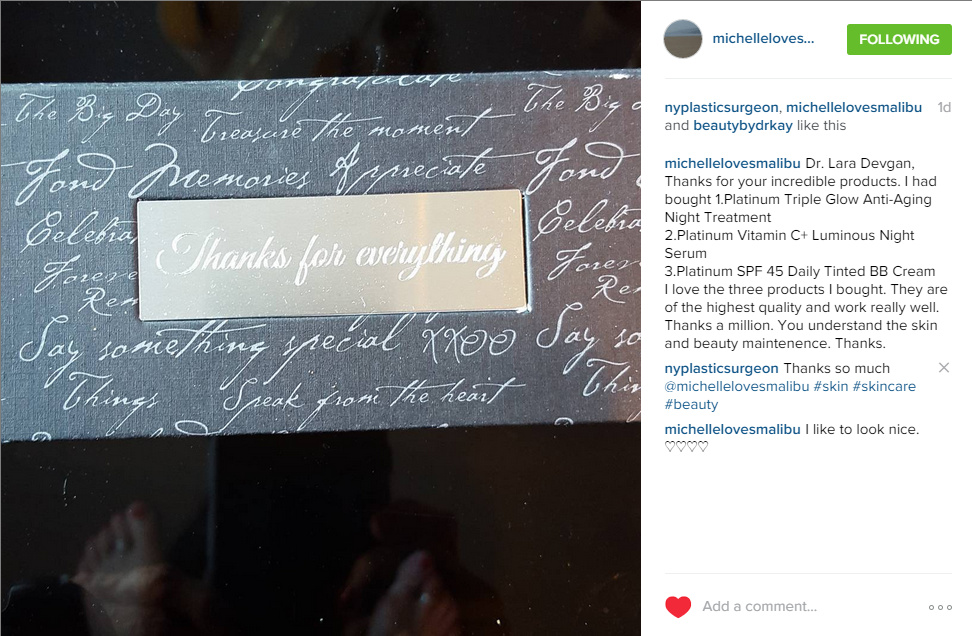 Congratulate
The Big Day
The Big
Treasure the moment
Fond Memories Appreciate Fond
Celebra
Celebra
Thanks for everything
Foreve
Forev
Rem
Re
Say something special XXOO Say so
Things Speak from the heart Thin
michelleloves...
FOLLOWING
nyplasticsurgeon, michellelovesmalibu 1d
and beautybydrkay like this
michellelovesmalibu Dr. Lara Devgan,
Thanks for your incredible products. I had
bought 1.Platinum Triple Glow Anti-Aging
Night Treatment
2.Platinum Vitamin C+ Luminous Night
Serum
3.Platinum SPF 45 Daily Tinted BB Cream
I love the three products I bought. They are
of the highest quality and work really well.
Thanks a million. You understand the skin
and beauty maintenence. Thanks.
nyplasticsurgeon Thanks so much
@michellelovesmalibu #skin #skincare
#beauty
michellelovesmalibu I like to look nice.
♡♡♡♡
Add a comment...